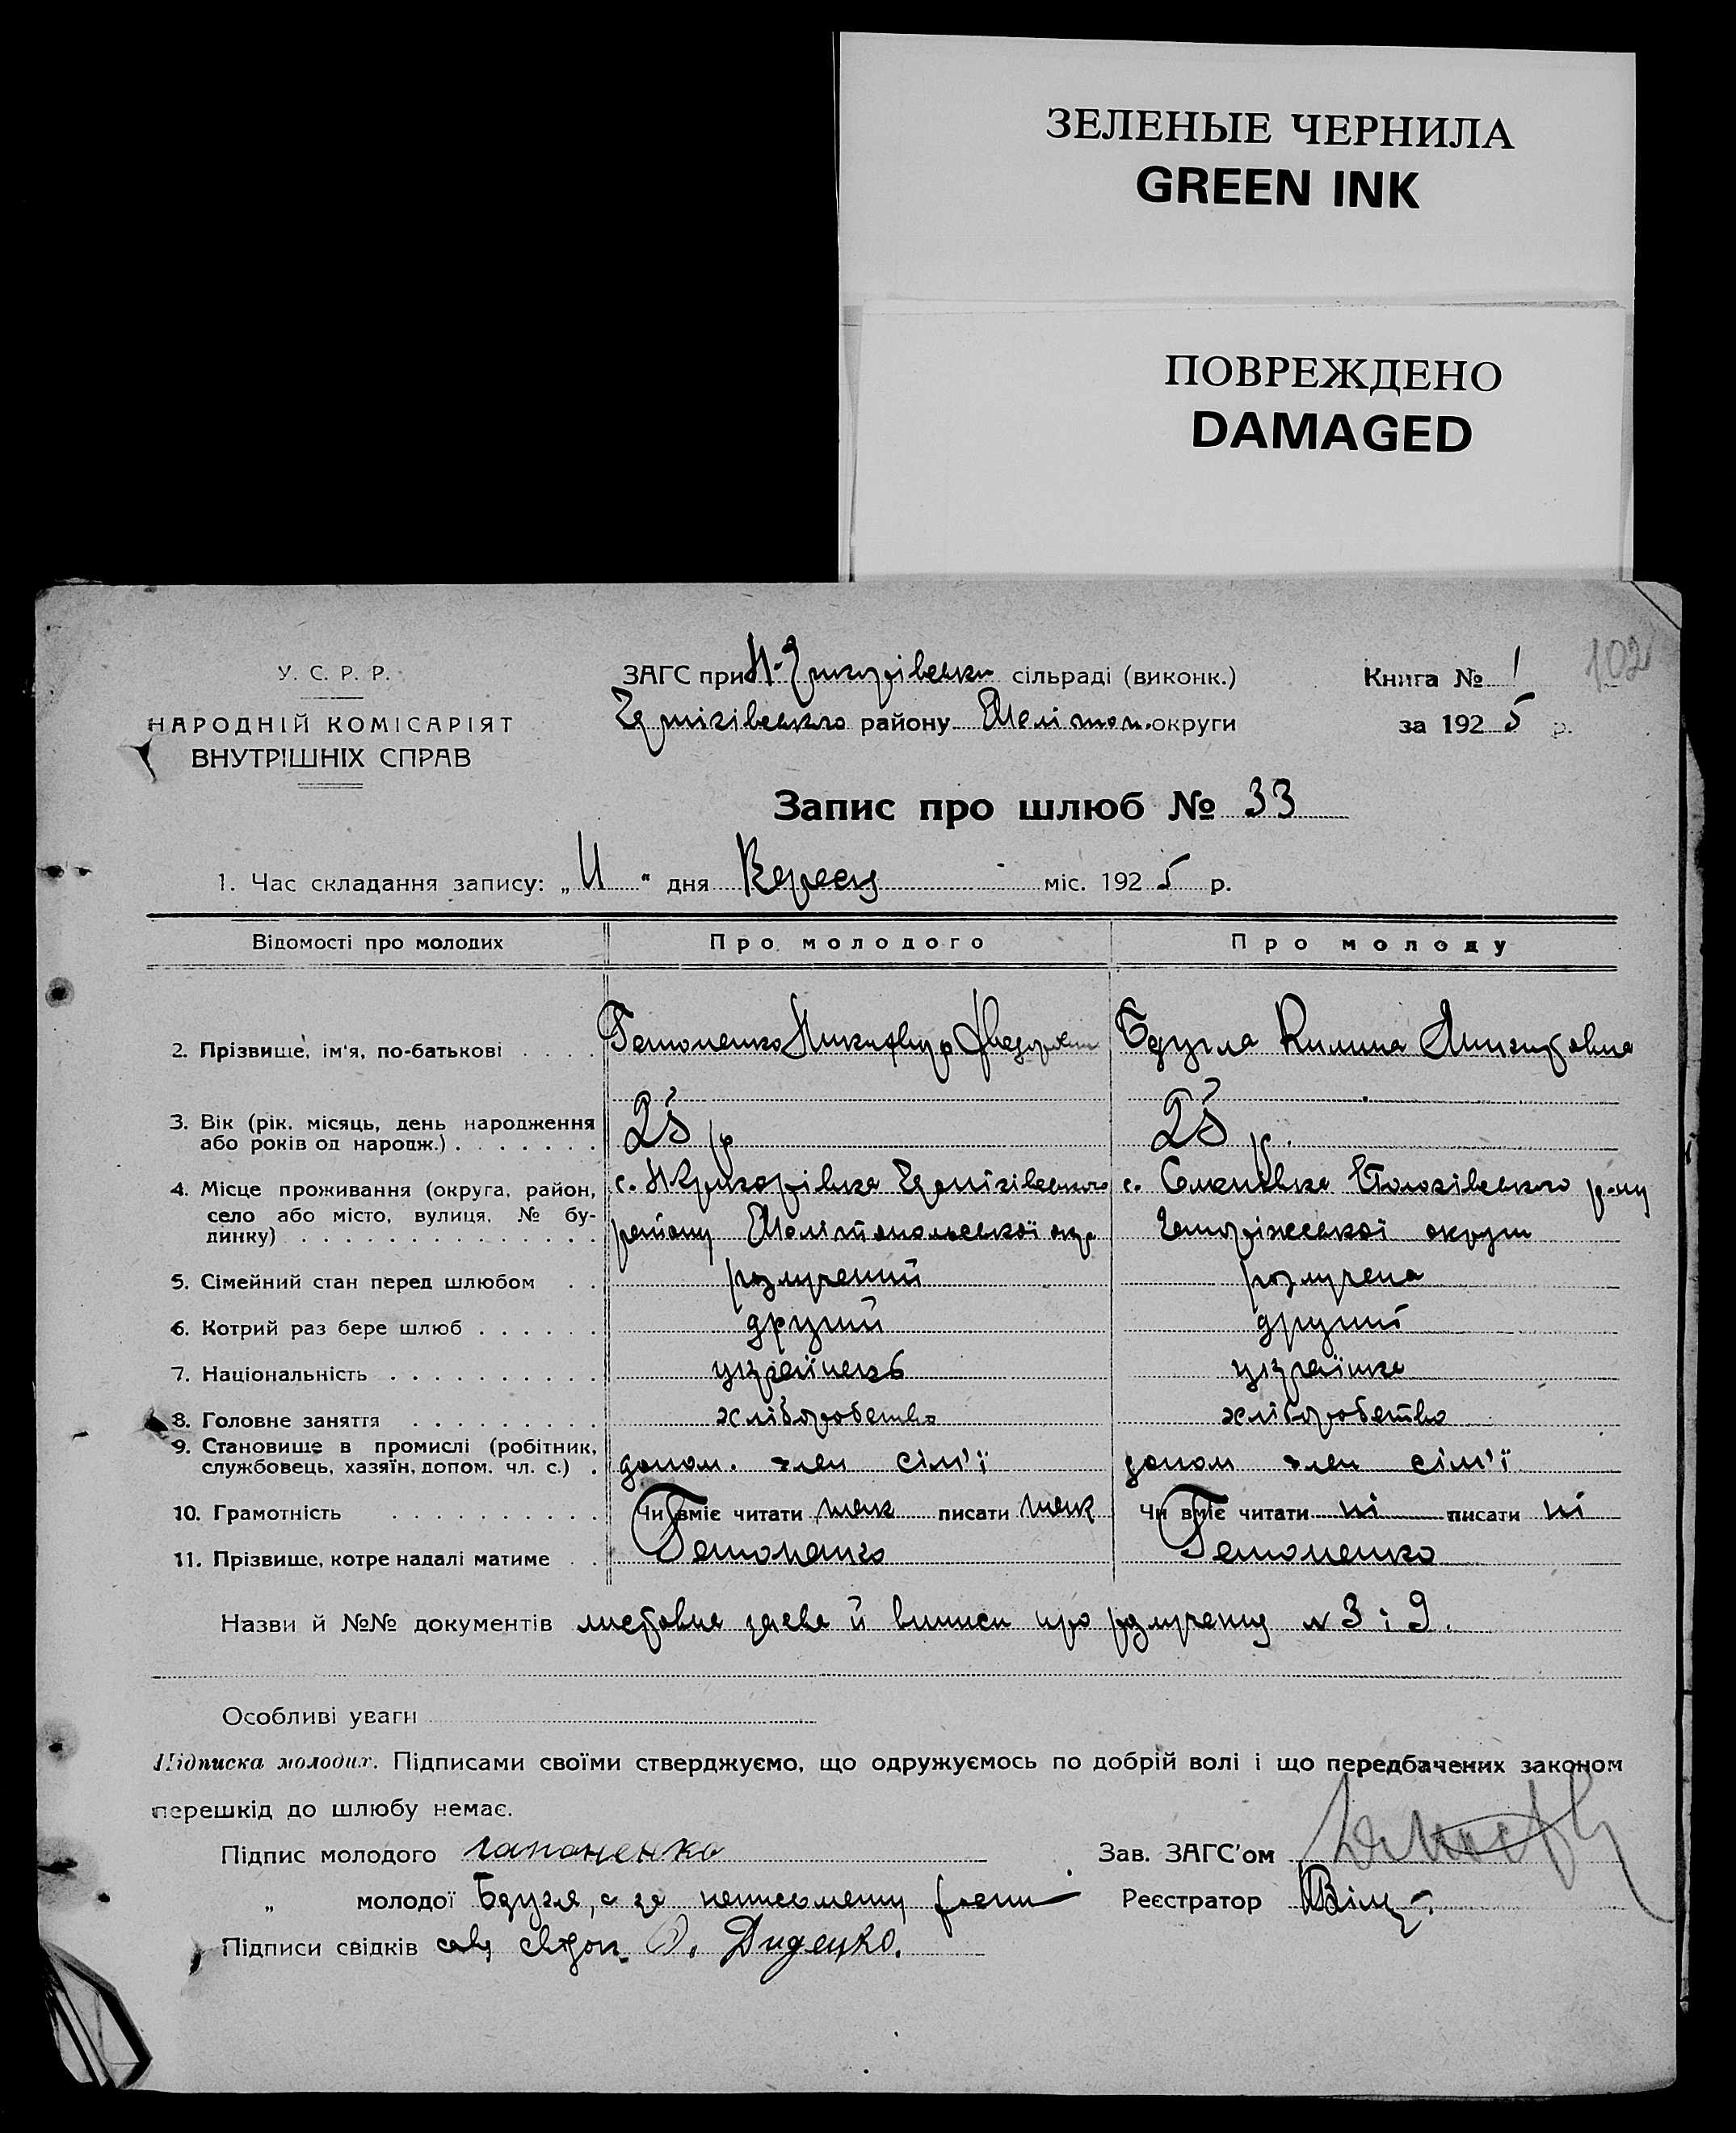 ЗЕЛЕНЫЕ ЧЕРНИЛА
GREEN INK
ПОВРЕЖДЕНО
DAMAGED
102
У. С. Р. Р.
НАРОДНІЙ КОМІСАРІЯТ
ВНУТРІШНІХ СПРАВ
ЗАГС при Н-Григорівськи сільраді (виконк.)
Чернігівського району Мелітоп. округи
Книга № 1
за 1925 р.
Запис про шлюб № 33
1. Час складання запису: „11“ дня Вересня міс. 1925 р.
Відомості про молодих Про молодого Про молоду
2. Прізвище, ім'я, по-батькові . . . . Гапоненко Никифир Бдугла Килина
3. Вік (рік, місяць, день народження
або років од народж.) . . . . . . . 25 р 25 р.
4. Місце проживання (округа, район, с. Н Григорівка Чернігівського с. Пологівського р-ну
село або місто, вулиця, № бу-
динку) . . . . . . . . . . . . . . району Мелітопольської окр Запоріжської округи
5. Сімейний стан перед шлюбом . . розлучений розлучена
6. Котрий раз бере шлюб . . . . . . другий другий
7. Національність . . . . . . . . . . українець українка
8. Головне заняття . . . . . . . . . хліборобство хліборобство
9. Становище в промислі (робітник,
службовець, хазяїн, допом. чл. с.) . допом. член сім'ї допом член сім'ї
10. Грамотність . . . . . . . . . . Чи вміє читати так писати так Чи вміє читати ні писати ні
11. Прізвище, котре надалі матиме . . Гапоненко Гапоненко
Назви й №№ документів заява й виписи про розлучення № 3 і 9.
Особливі уваги
Підписка молодих. Підписами своїми стверджуємо, що одружуємось по добрій волі і що передбачених законом
перешкід до шлюбу немає.
Підпис молодого гапоненко
Зав. ЗАГС'ом
„ молодої Бдугла, а за неписьменну
Реєстратор
Підписи свідків Диденко.